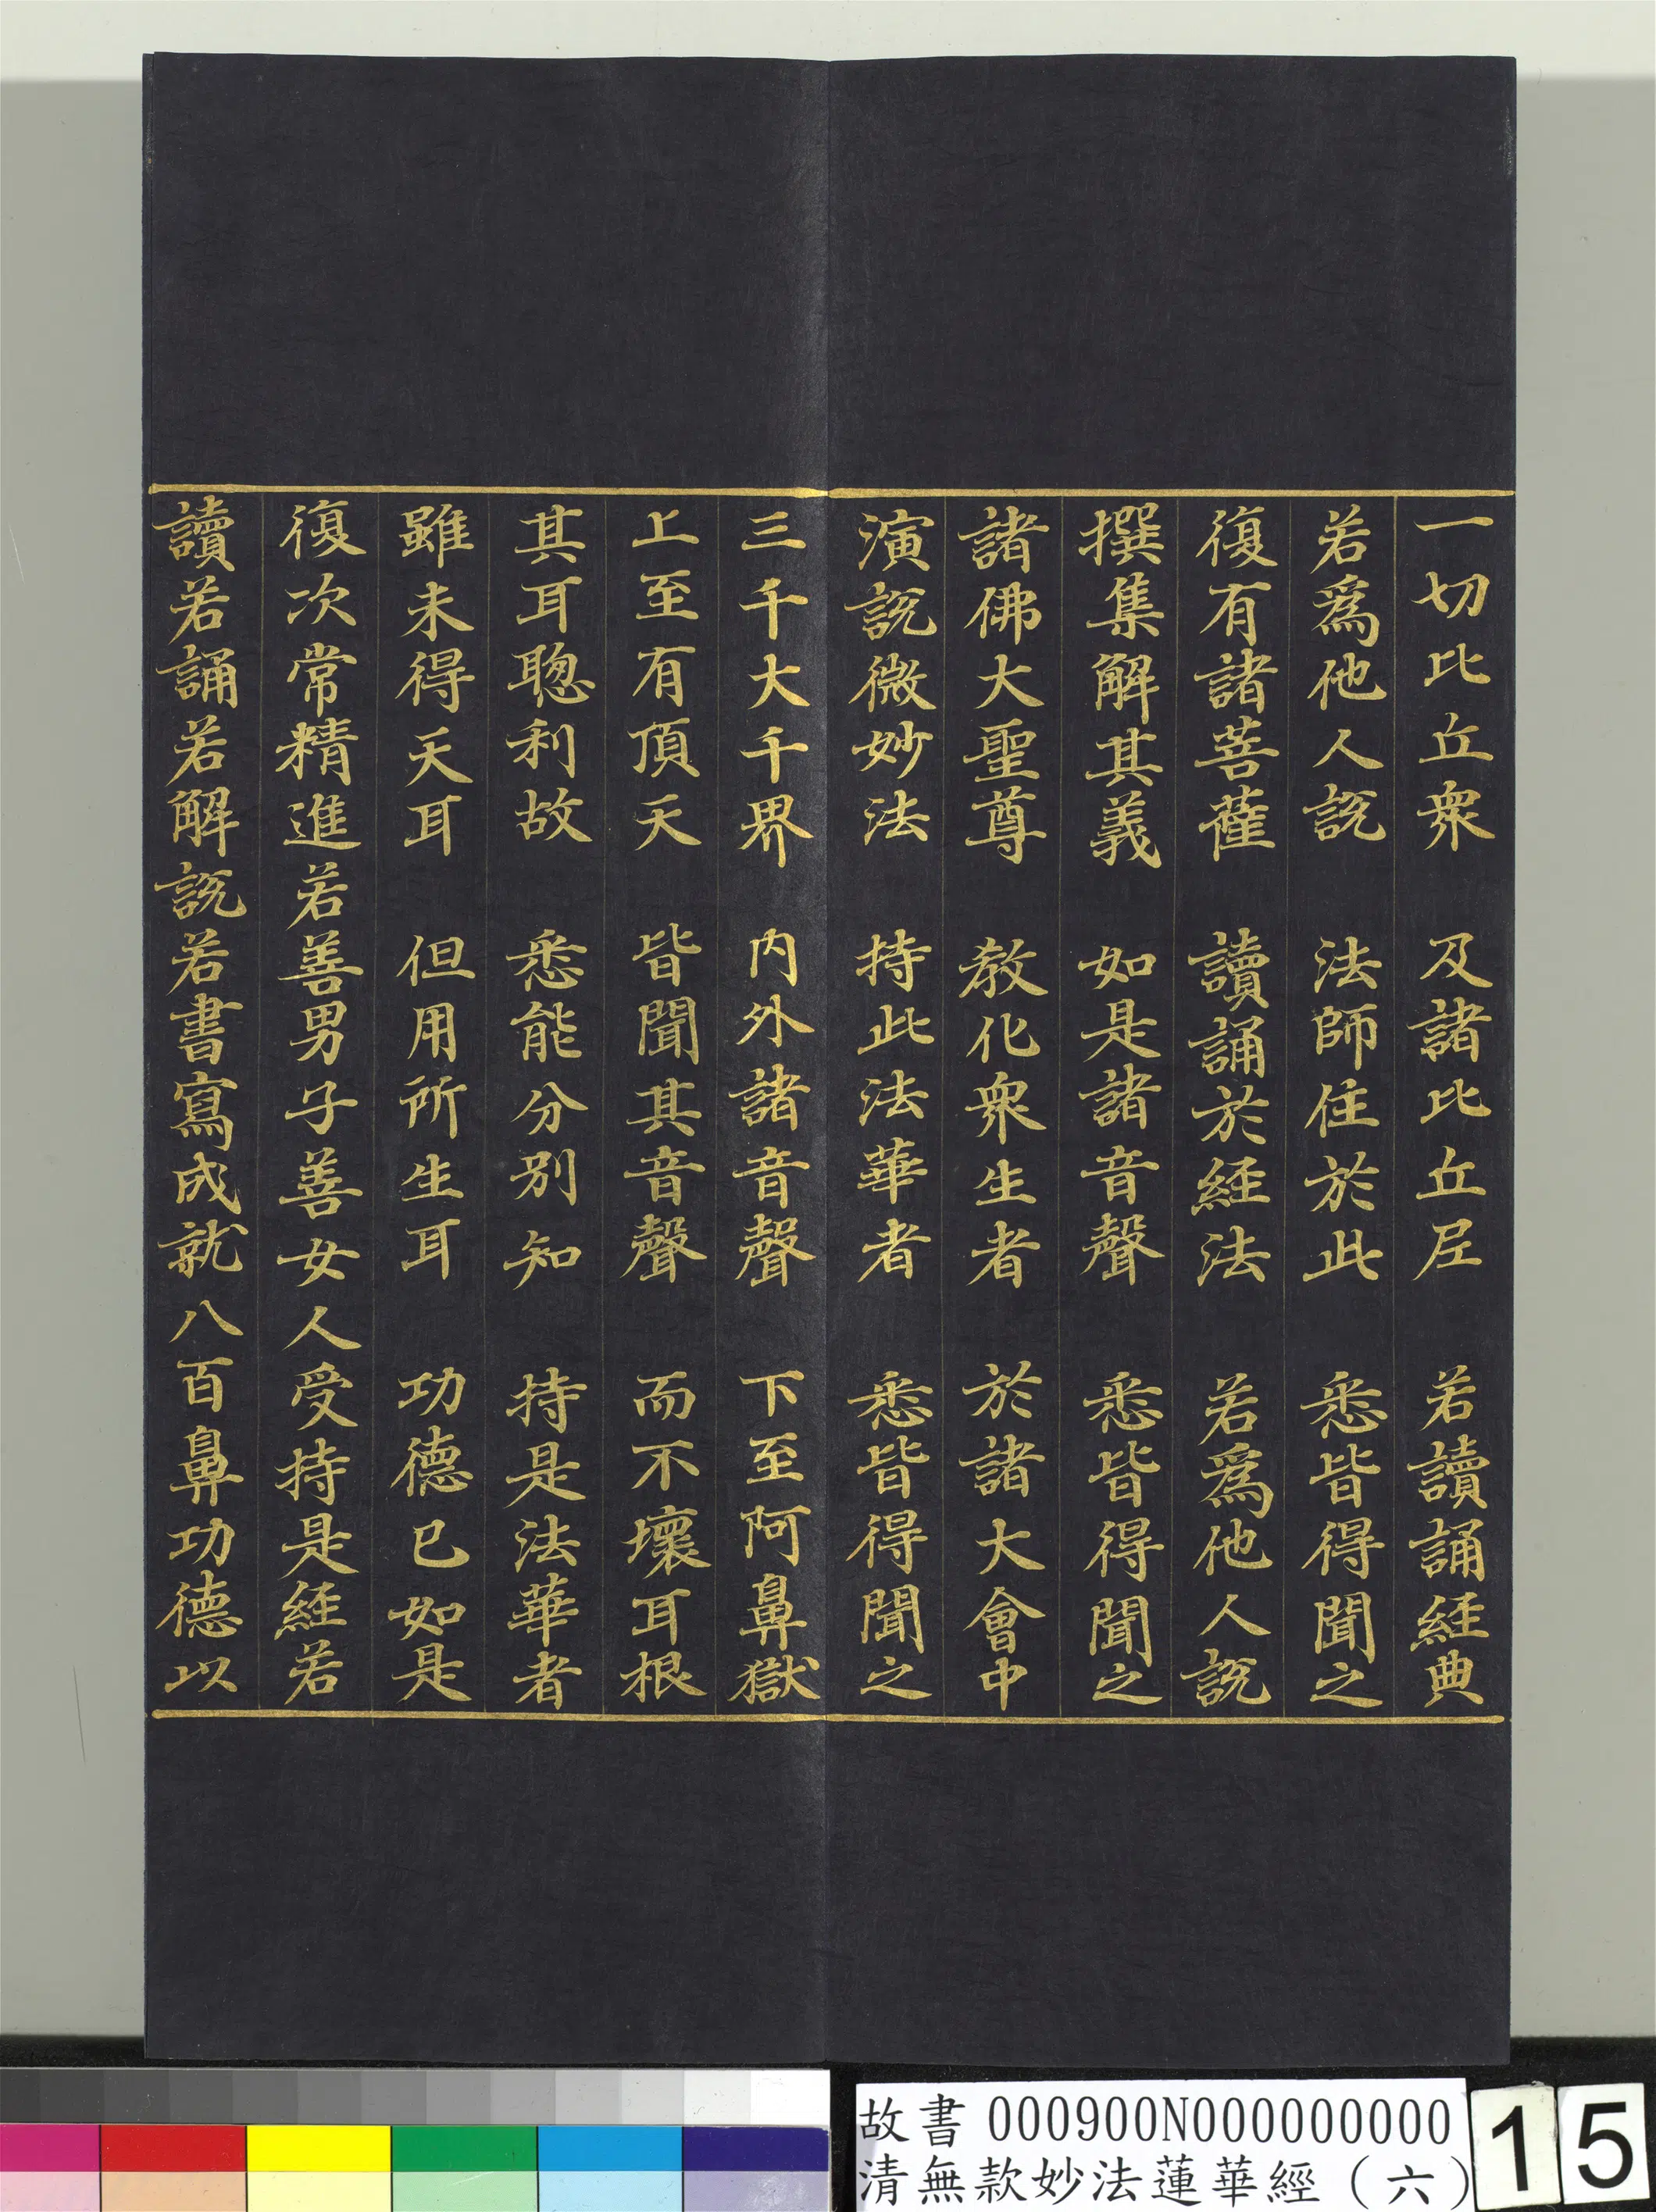 一切比丘衆　及諸比丘尼　若讀誦經典
若爲他人說　法師住於此　悉皆得聞之
復有諸菩薩　讀誦於經法　若爲他人說
撰集解其義　如是諸音聲　悉皆得聞之
諸佛大聖尊　教化衆生者　於諸大會中
演說微妙法　持此法華者　悉皆得聞之
三千大千界　内外諸音聲　下至阿鼻獄
上至有頂天　皆聞其音聲　而不壞耳根
其耳聰利故　悉能分別知　持是法華者
雖未得天耳　但用所生耳　功德已如是
復次常精進若善男子善女人受持是經若
讀若誦若解說若書寫成就八百鼻功德以
故書 000900N000000000 15
清無款妙法蓮華經（六）